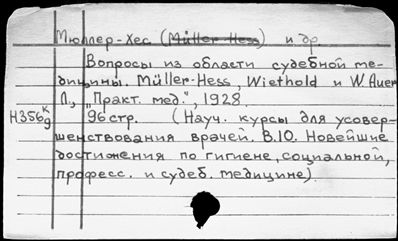 Мюллер-Хес (Müller-Hess) и др
Вопросы из области судебной ме-
дицины. Müller-Hess, Wiethold и W. Auer
Л., „Практ. мед.", 1928.
Н356 к/д 96 стр. (Науч. курсы для усовер-
шенствования врачей. В.10. Новейшие
достижения по гигиене, социальной,
професс. и судеб. медицине).